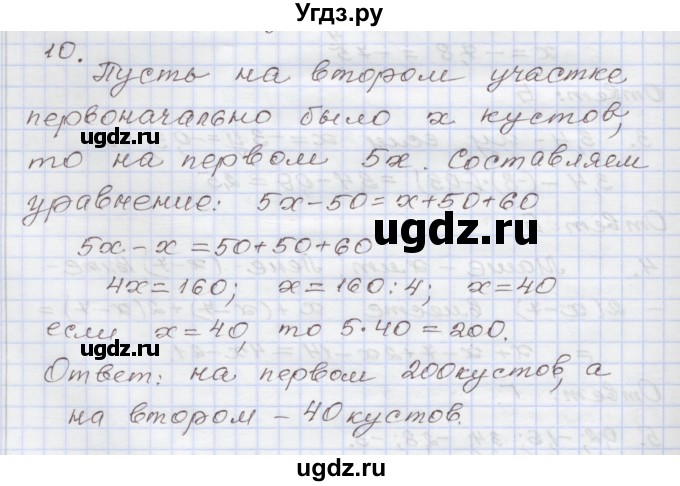 Угдз.ру
10.
Пусть на втором участке
первоначально было x кустов,
то на первом 5x. Составляем
уравнение: 5x-50=x+50+60
5x-x=50+50+60
4x=160; x=160:4; x=40
если x=40, то 5·40=200.
Ответ: на первом 200 кустов, а
на втором - 40 кустов.
ugdz.ru
ugdz.ru
ugdz.ru
ugdz.ru